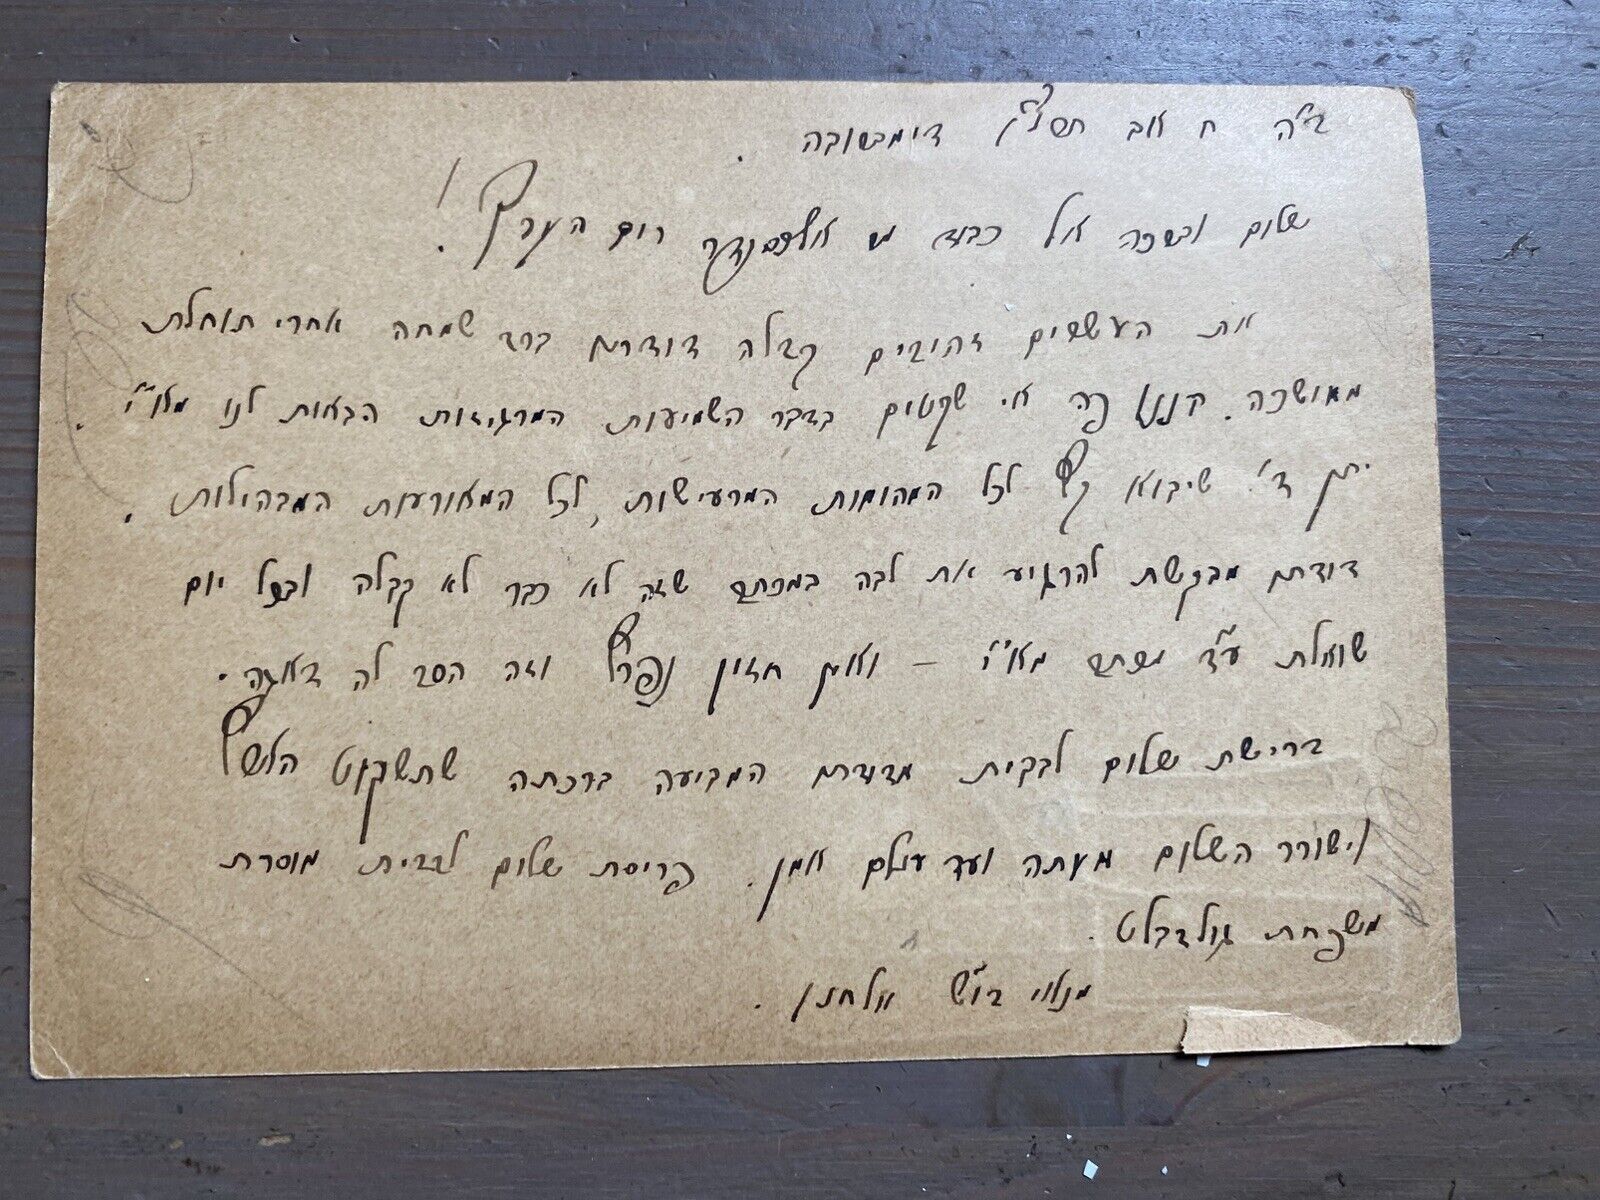 ב"ה ח אב תרצ"ו דומבשובה.
שלום וברכה אל כבוד מ אלכסנדר רום הערך!
את העשרים זהובים קבלה דודתי ברב שמחה אחרי תוחלת
מאושרה. הננו פה אי שקטים בדבר השמיעות המרגיזות הבאות לנו מא"י.
יתן ד' שיבוא קץ לכל המהומות המרעישות, לכל המאורעות המבהילות.
דודתי מבקשת להרגיע את לבה במכתב שזה לא כבר לא קבלה ובכל יום
שואלת ע"ד מכתב מא"י – ואין חזון נפרץ וזה הסב לה דאגה.
דרישת שלום לבבית מדודתי המביעה ברכתה שתשקוט הארץ
וישורר השלום מעתה ועד עולם אמן. פריסת שלום לבבית מוסרת
משפחת גולדבלט.
מנאי דו"ש אלחנן.